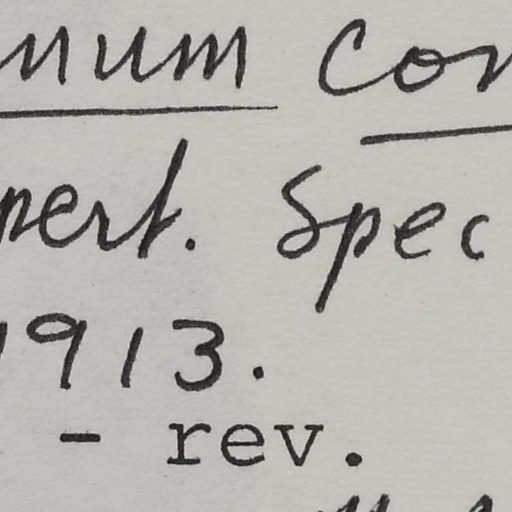 num con
pert. Spec
1913.
- rev.